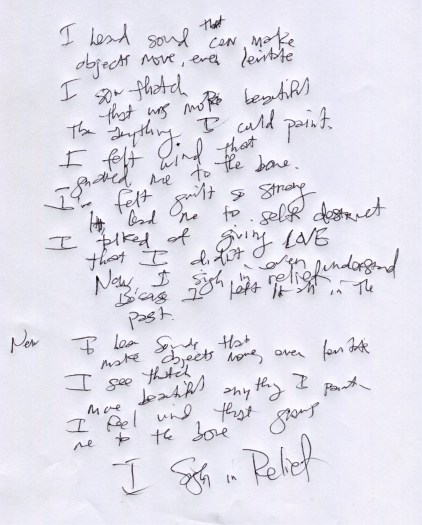 I heard sound that can make
objects move, even levitate
I saw thatch
that was more beautiful
the anything I could paint.
I felt wind that
gnawed me to the bone.
I've felt guilt so strong
it lead me to self destruct
I talked of giving LOVE
that I didn't even understand
Now I sigh in relief
because I left it all in the
past.
Now I hear sounds that
make objects move, even levitate
I see thatch
more beautiful anything I paint
I feel wind that gnaws
me to the bone
I Sigh in Relief